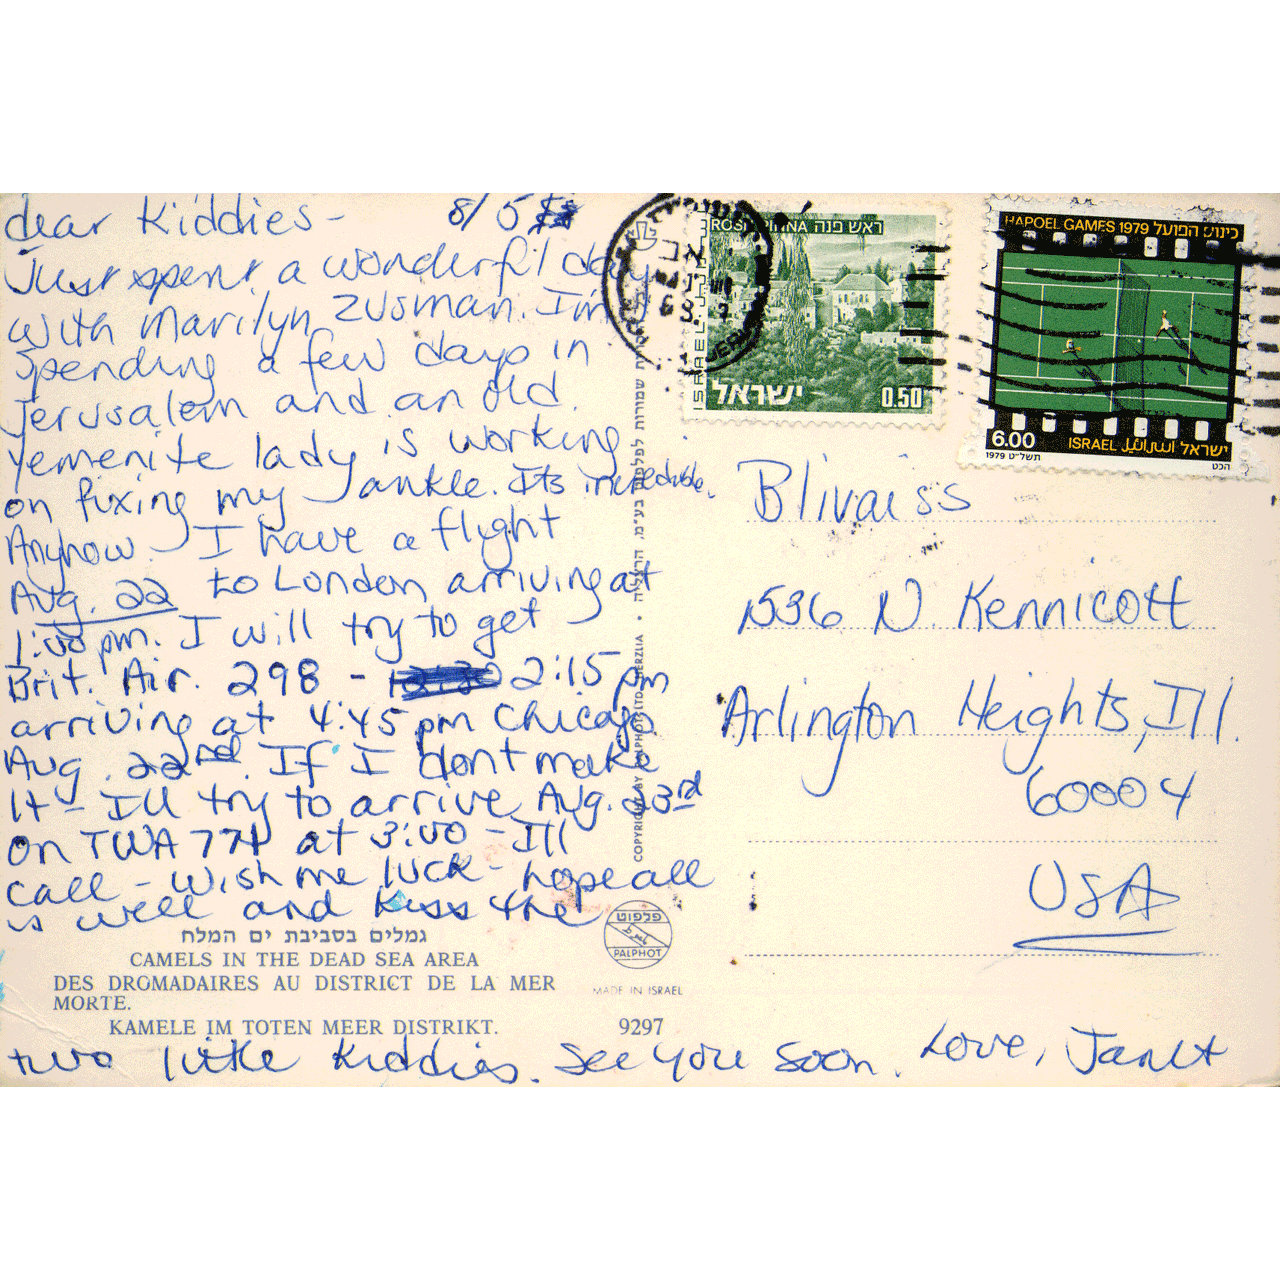 dear Kiddies - 8/5
Just spent a wonderful day
with Marilyn Zusman. I'm
spending a few days in
Jerusalem and an old
Yemenite lady is working
on fixing my ankle. Its incredible.
Anyhow - I have a flight
Aug. 22 to London arriving at
1:00 pm. I will try to get
Brit. Air. 298 - 2:15 pm
arriving at 4:45 pm Chicago
Aug. 22nd. If I dont make
it - Ill try to arrive Aug. 23rd
on TWA 771 at 3:00 - Ill
call - wish me luck - hope all
is well and kiss the
two little Kiddies. See you soon. Love, Janet
גמלים בסביבת ים המלח
CAMELS IN THE DEAD SEA AREA
DES DROMADAIRES AU DISTRICT DE LA MER
MORTE.
KAMELE IM TOTEN MEER DISTRIKT.
פלפוט
PALPHOT
MADE IN ISRAEL
9297
COPYRIGHT BY PALPHOT LTD. HERZLIA • שמורות לפלפוט בע"מ, הרצליה
ROSH PINNA ראש פנה
ISRAEL
ישראל
0.50
HAPOEL GAMES 1979 כינוס הפועל
6.00
ISRAEL اسرائيل ישראל
1979 תשל"ט
הכט
Blivaiss
1536 N. Kennicott
Arlington Heights, Ill.
60004
USA